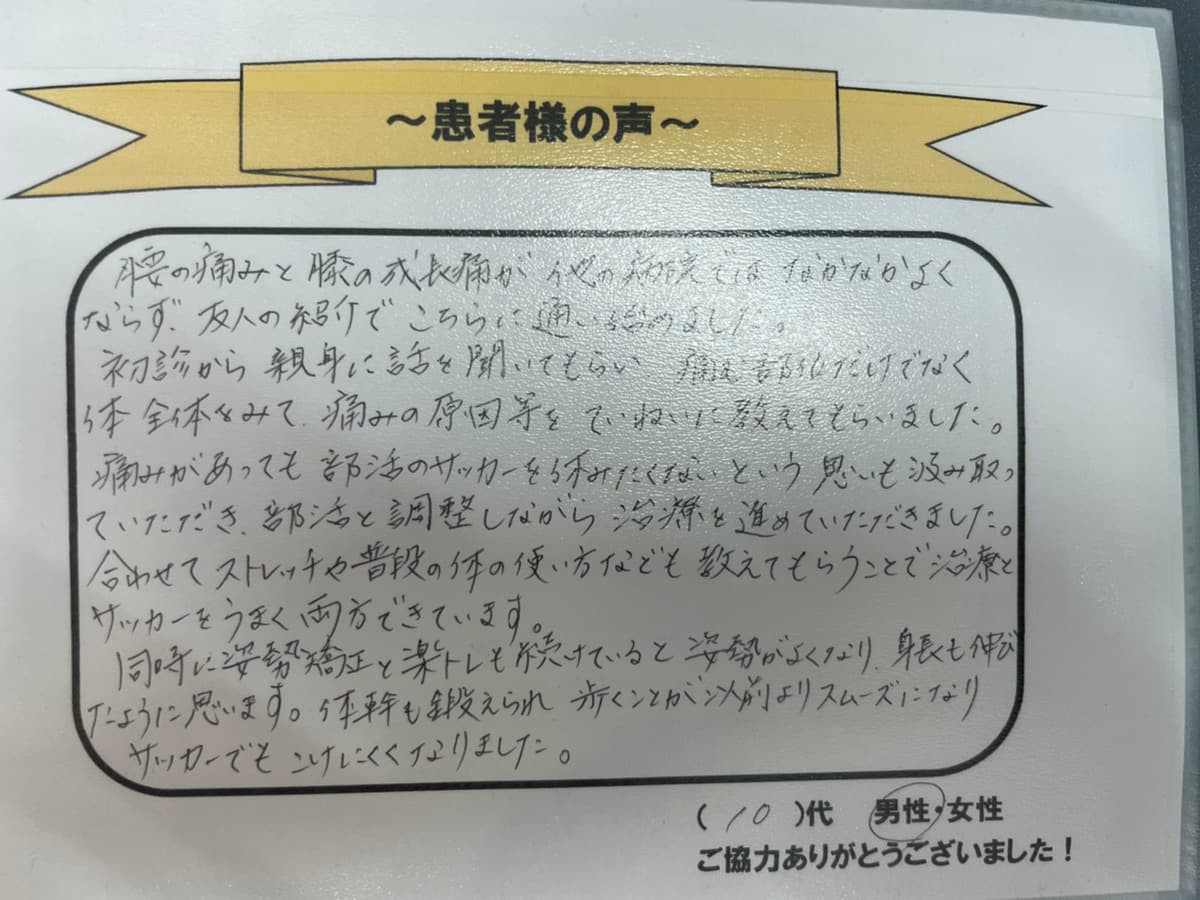 ～患者様の声～
腰の痛みと膝の成長痛が他の病院ではなかなかよく
ならず、友人の紹介でこちらに通い始めました。
初診から親身に話を聞いてもらい 痛む部位だけでなく
体全体をみて、痛みの原因等をていねいに教えてもらいました。
痛みがあっても部活のサッカーを休みたくないという思いも汲み取っ
ていただき、部活と調整しながら治療を進めていただきました。
合わせてストレッチや普段の体の使い方なども教えてもらうことで治療と
サッカーをうまく両方できています。
同時に姿勢矯正と楽トレも続けていると姿勢がよくなり、身長も伸び
たように思います。体幹も鍛えられ 歩くことが以前よりスムーズになり
サッカーでもこけにくくなりました。
(10)代 男性・女性
ご協力ありがとうございました！